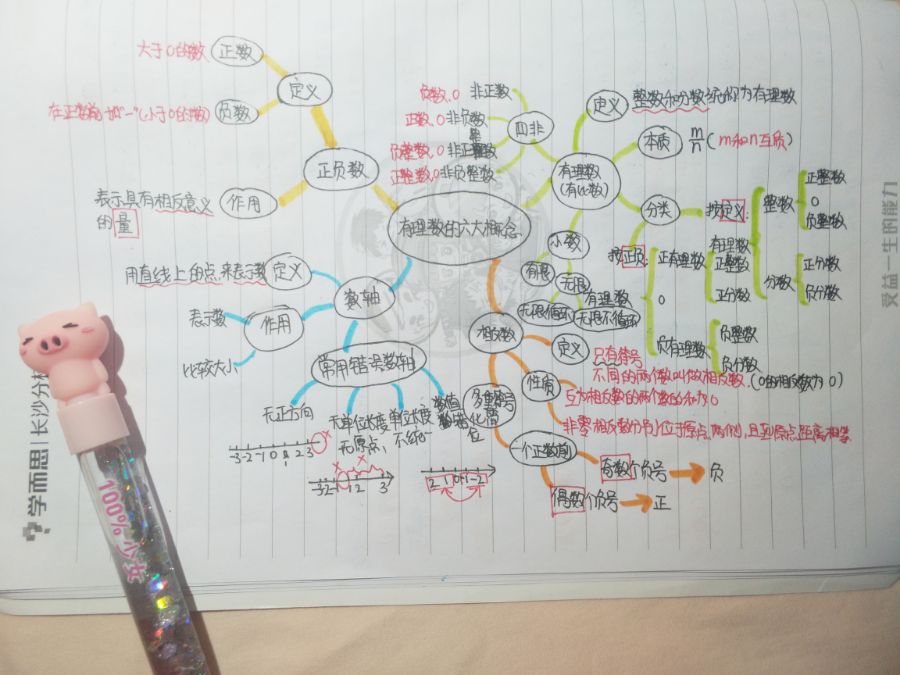 有理数的六大概念
正负数
定义
正数
大于0的数
负数
在正数前加"-"(小于0的数)
作用
表示具有相反意义
的量
数轴
定义
用直线上的点来表示数
作用
表示数
比较大小
常用错误数轴
无正方向
-3 -2 -1 0 1 2 3
无单位长度
无原点,
-3 -2 1 2 3
单位长度
不统一
数值
2 1 0 -1 -2
有理数
(有比数)
四非
负数、0 非正数
正数、0 非负数
负整数、0 非正整数
正整数、0 非负整数
定义
整数和分数统称为有理数
本质
m/n (m和n互质)
分类
按定义:
有理数
整数
正整数
0
负整数
分数
正分数
负分数
按正负:
有理数
正有理数
正整数
正分数
0
负有理数
负整数
负分数
小数
有限
无限
无限循环
无限不循环
相反数
定义
只有符号
不同的两个数叫做相反数(0的相反数为0)
性质
互为相反数的两个数的和为0
非零相反数分别位于原点两侧,且到原点距离相等
多重符号
化简
一个正数前
奇数个负号→负
偶数个负号→正
学而思 | 长沙分校
受益一生的能力
100%少女